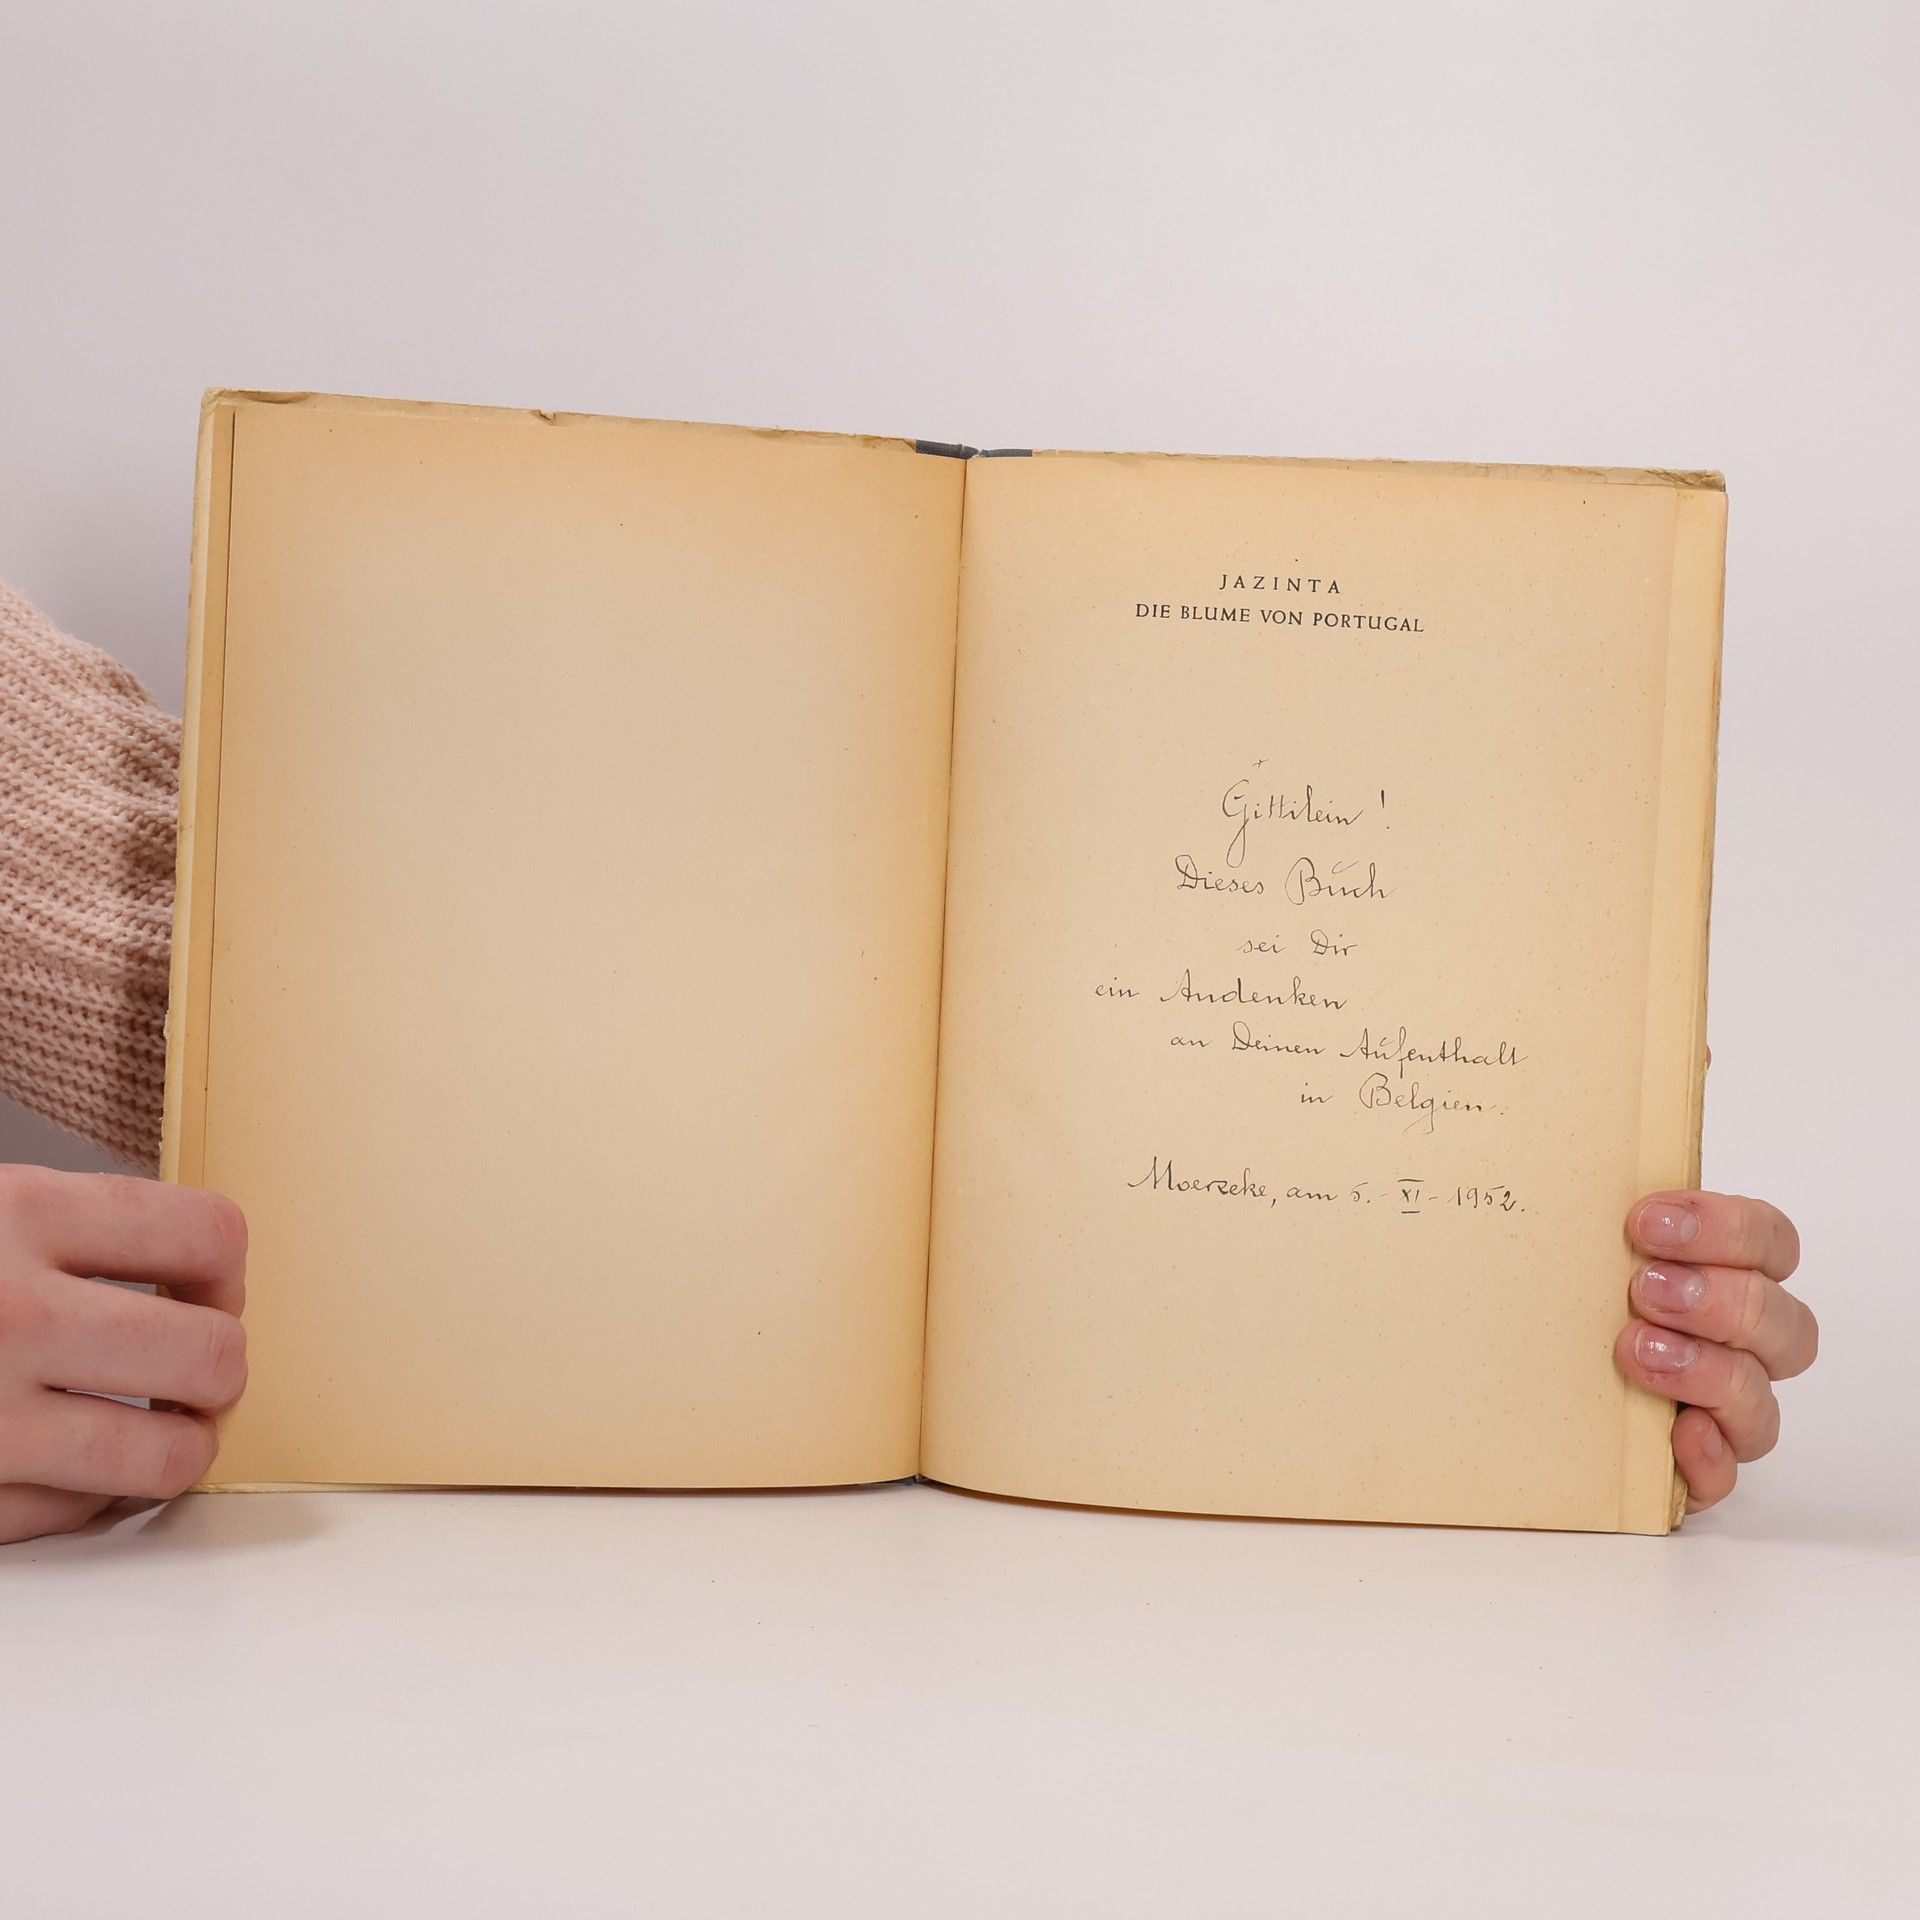 JAZINTA
DIE BLUME VON PORTUGAL
+
Gittilein !
Dieses Buch
sei Dir
ein Andenken
an Deinen Aufenthalt
in Belgien.
Moerzeke, am 5. - XI - 1952.